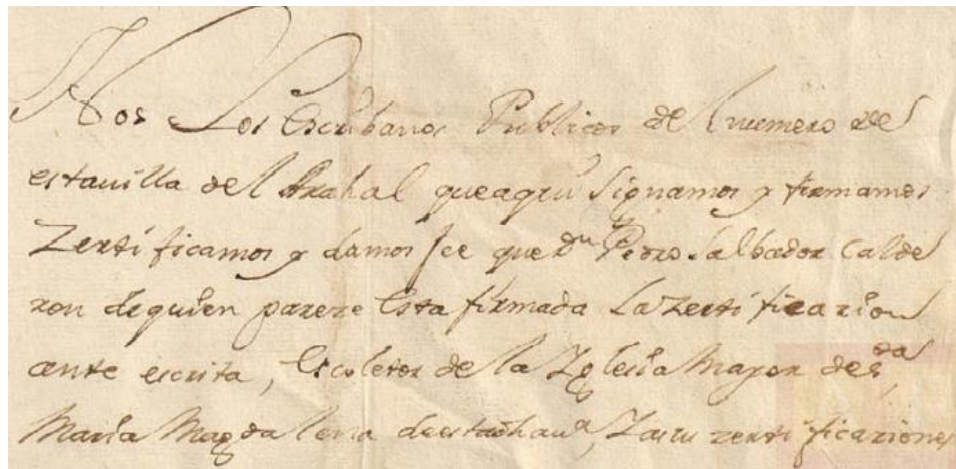 Nos Los Escribanos Publicos del numero de
esta villa del Arahal que aqui Signamos y firmamos
Zertificamos y damos fee que Dn Pedro Salbador Calde
ron de quien pareze Esta firmada La zertificazion
ante escrita, Es coletor de la Yglesia Mayor de Sta
Maria Magdalena de esta dha va,